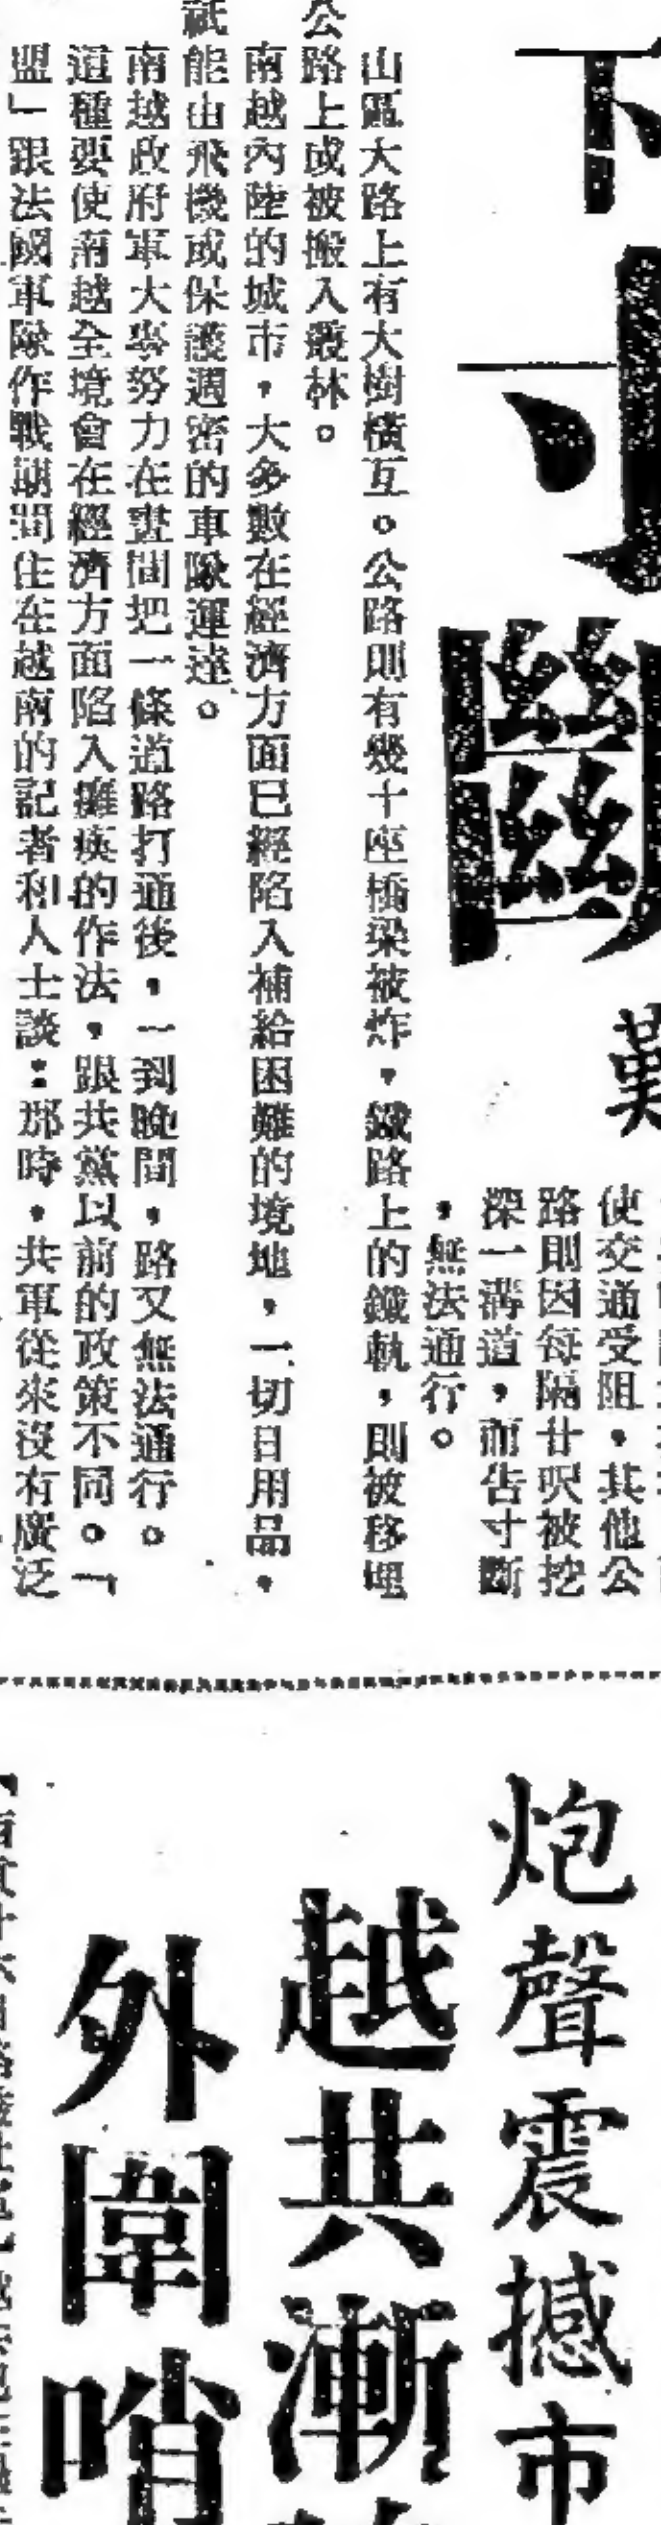 下寸斷
難
使交通受阻，其他公
路則因每隔廿呎被挖
深一溝道，而告寸斷
，無法通行。
山區大路上有大樹橫互。公路則有幾十座橋梁被炸，鐵路上的鐵軌，則被移埋
公路上或被搬入叢林。
南越內陸的城市，大多數在經濟方面已經陷入補給困難的境地，一切日用品，
祇能由飛機或保護週密的車隊運達。
南越政府軍大舉努力在晝間把一條道路打通後，一到晚間，路又無法通行。
這種要使南越全境會在經濟方面陷入癱瘓的作法，跟共黨以前的政策不同。「
盟」跟法國軍隊作戰期間住在越南的記者和人士談：那時，共軍從來沒有廣泛
炮聲震撼市
越共漸
外圍哨